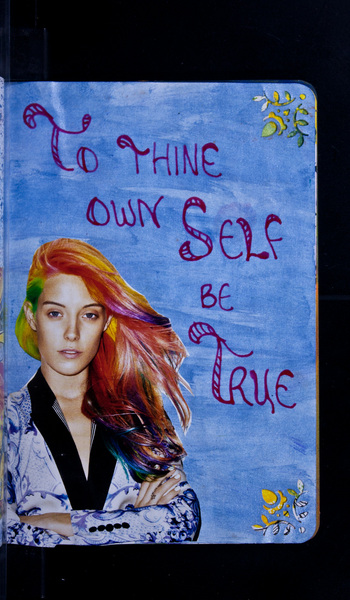 To THINE
OWN SELF
BE
TRUE